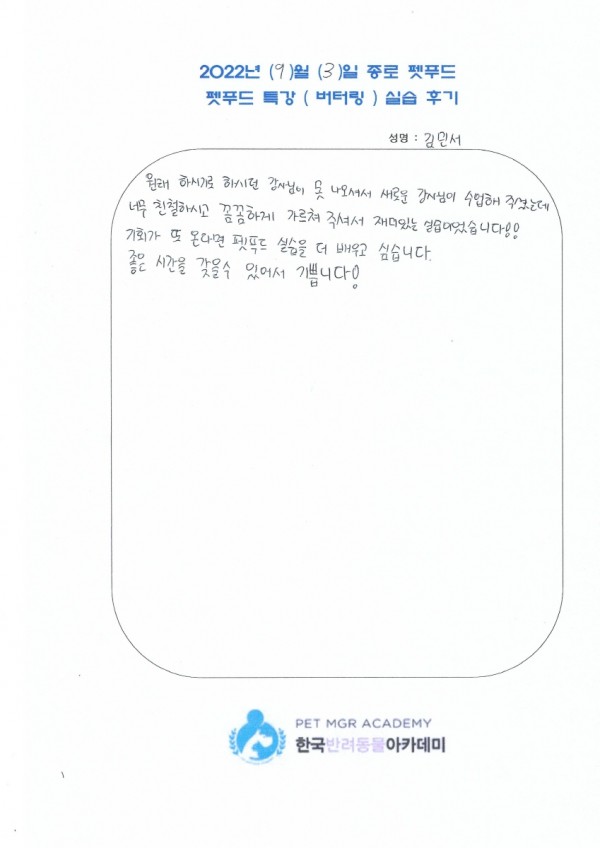 2022년 (9)월 (3)일 종로 펫푸드
펫푸드 특강 ( 버터링 ) 실습 후기
성명 : 김민서
원래 하시기로 하시던 강사님이 못 나오셔서 새로운 강사님이 수업해 주셨는데
너무 친절하시고 꼼꼼하게 가르쳐 주셔서 재미있는 실습이었습니다!!
기회가 또 온다면 펫푸드 실습을 더 배우고 심습니다.
좋은 시간을 갖을수 있어서 기쁩니다!
PET MGR ACADEMY
한국반려동물아카데미